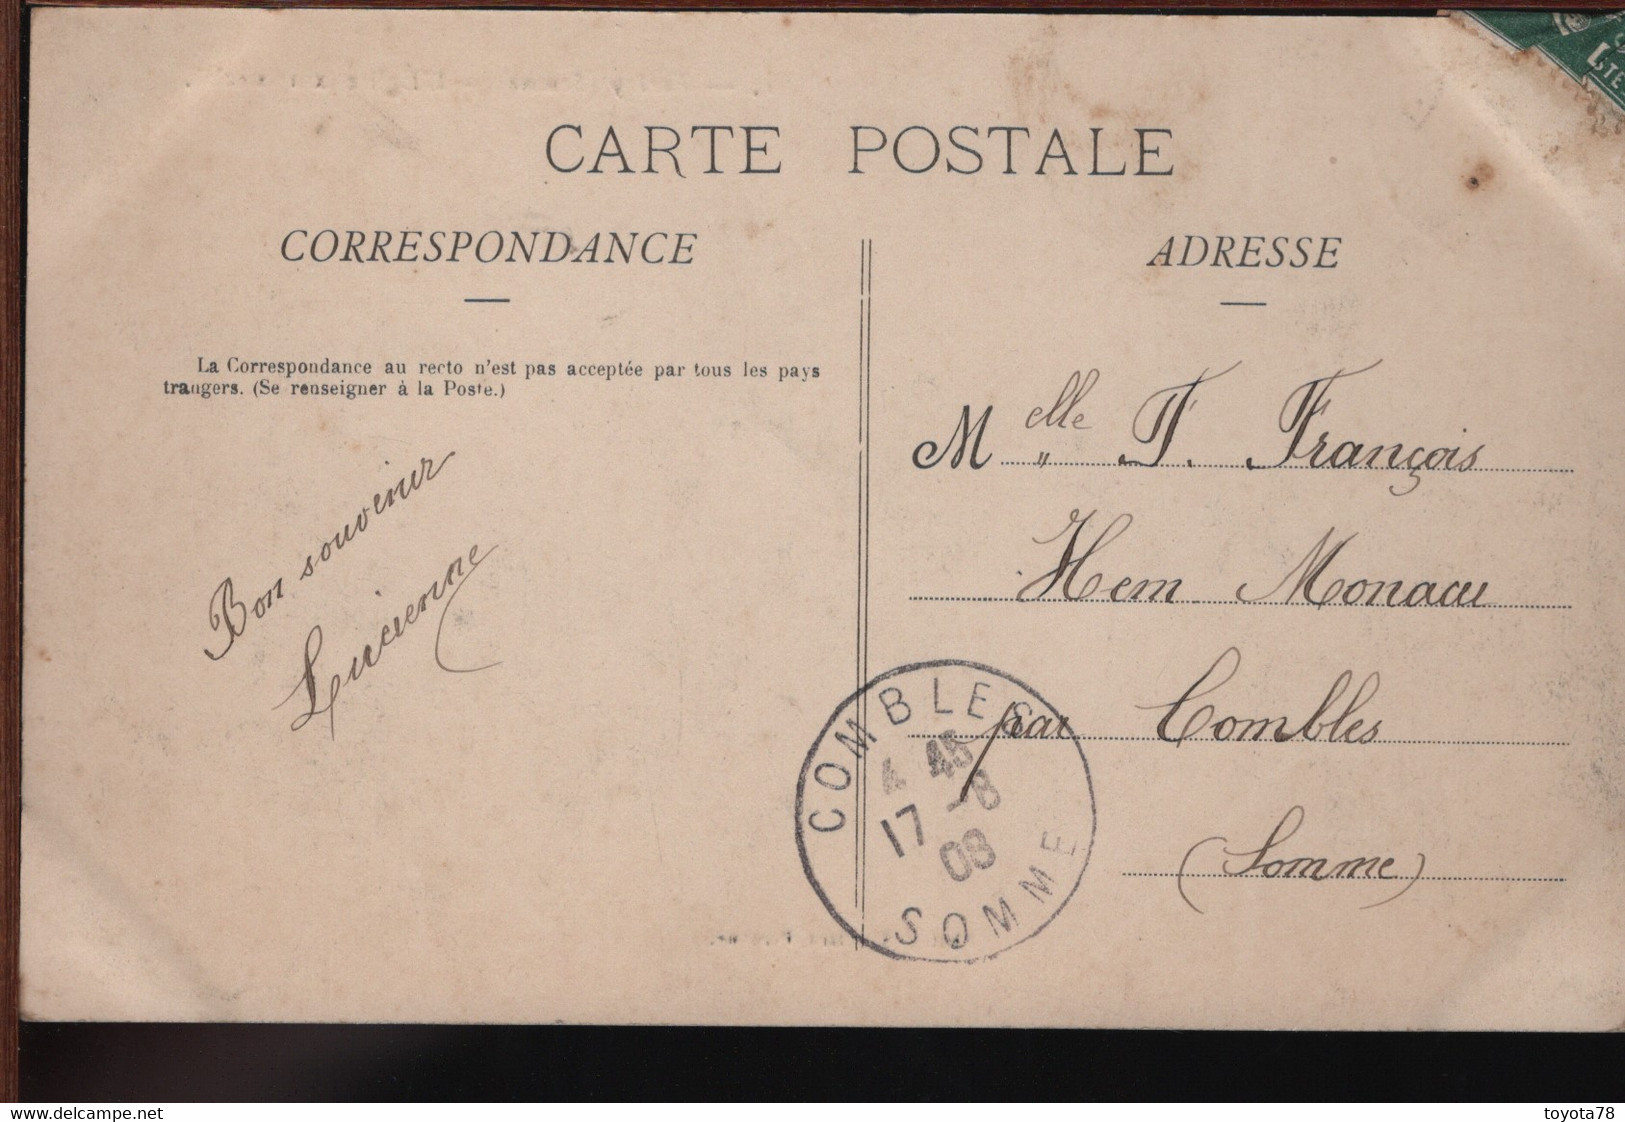 CARTE POSTALE
CORRESPONDANCE
ADRESSE
La Correspondance au recto n'est pas acceptée par tous les pays
trangers. (Se renseigner à la Poste.)
Bon souvenir
Lucienne
Melle F. François
Hem Monacu
par Combles
(Somme)
COMBLES
4 45
17 -8
08
SOMME
www.delcampe.net
toyota78